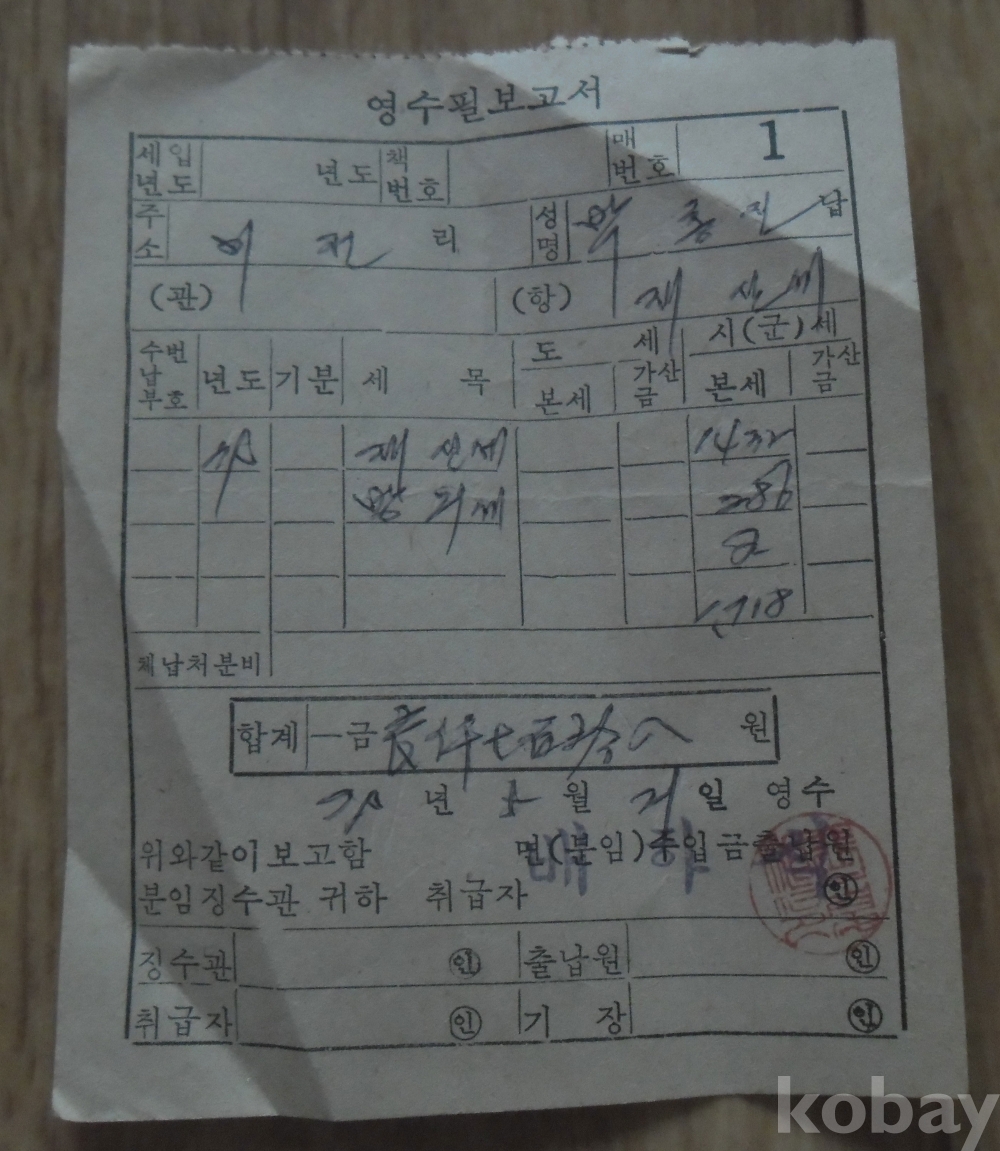 영수필보고서
세입년도 년도 책번호 매번호 1
주소 이전 리 성명 박종진 납
(관) (항) 재산세
수납부번호 년도 기분 세목 도세 시(군)세
본세 가산금 본세 가산금
재산세 1432
방위세 286
1718
체납처분비
합계 一金 壹仟七百拾八 원
년 월 일 영수
위와같이보고함 면(분임)수입금출납원
분임징수관 귀하 취급자 ㊞
징수관 ㊞ 출납원 ㊞
취급자 ㊞ 기장 ㊞
kobay